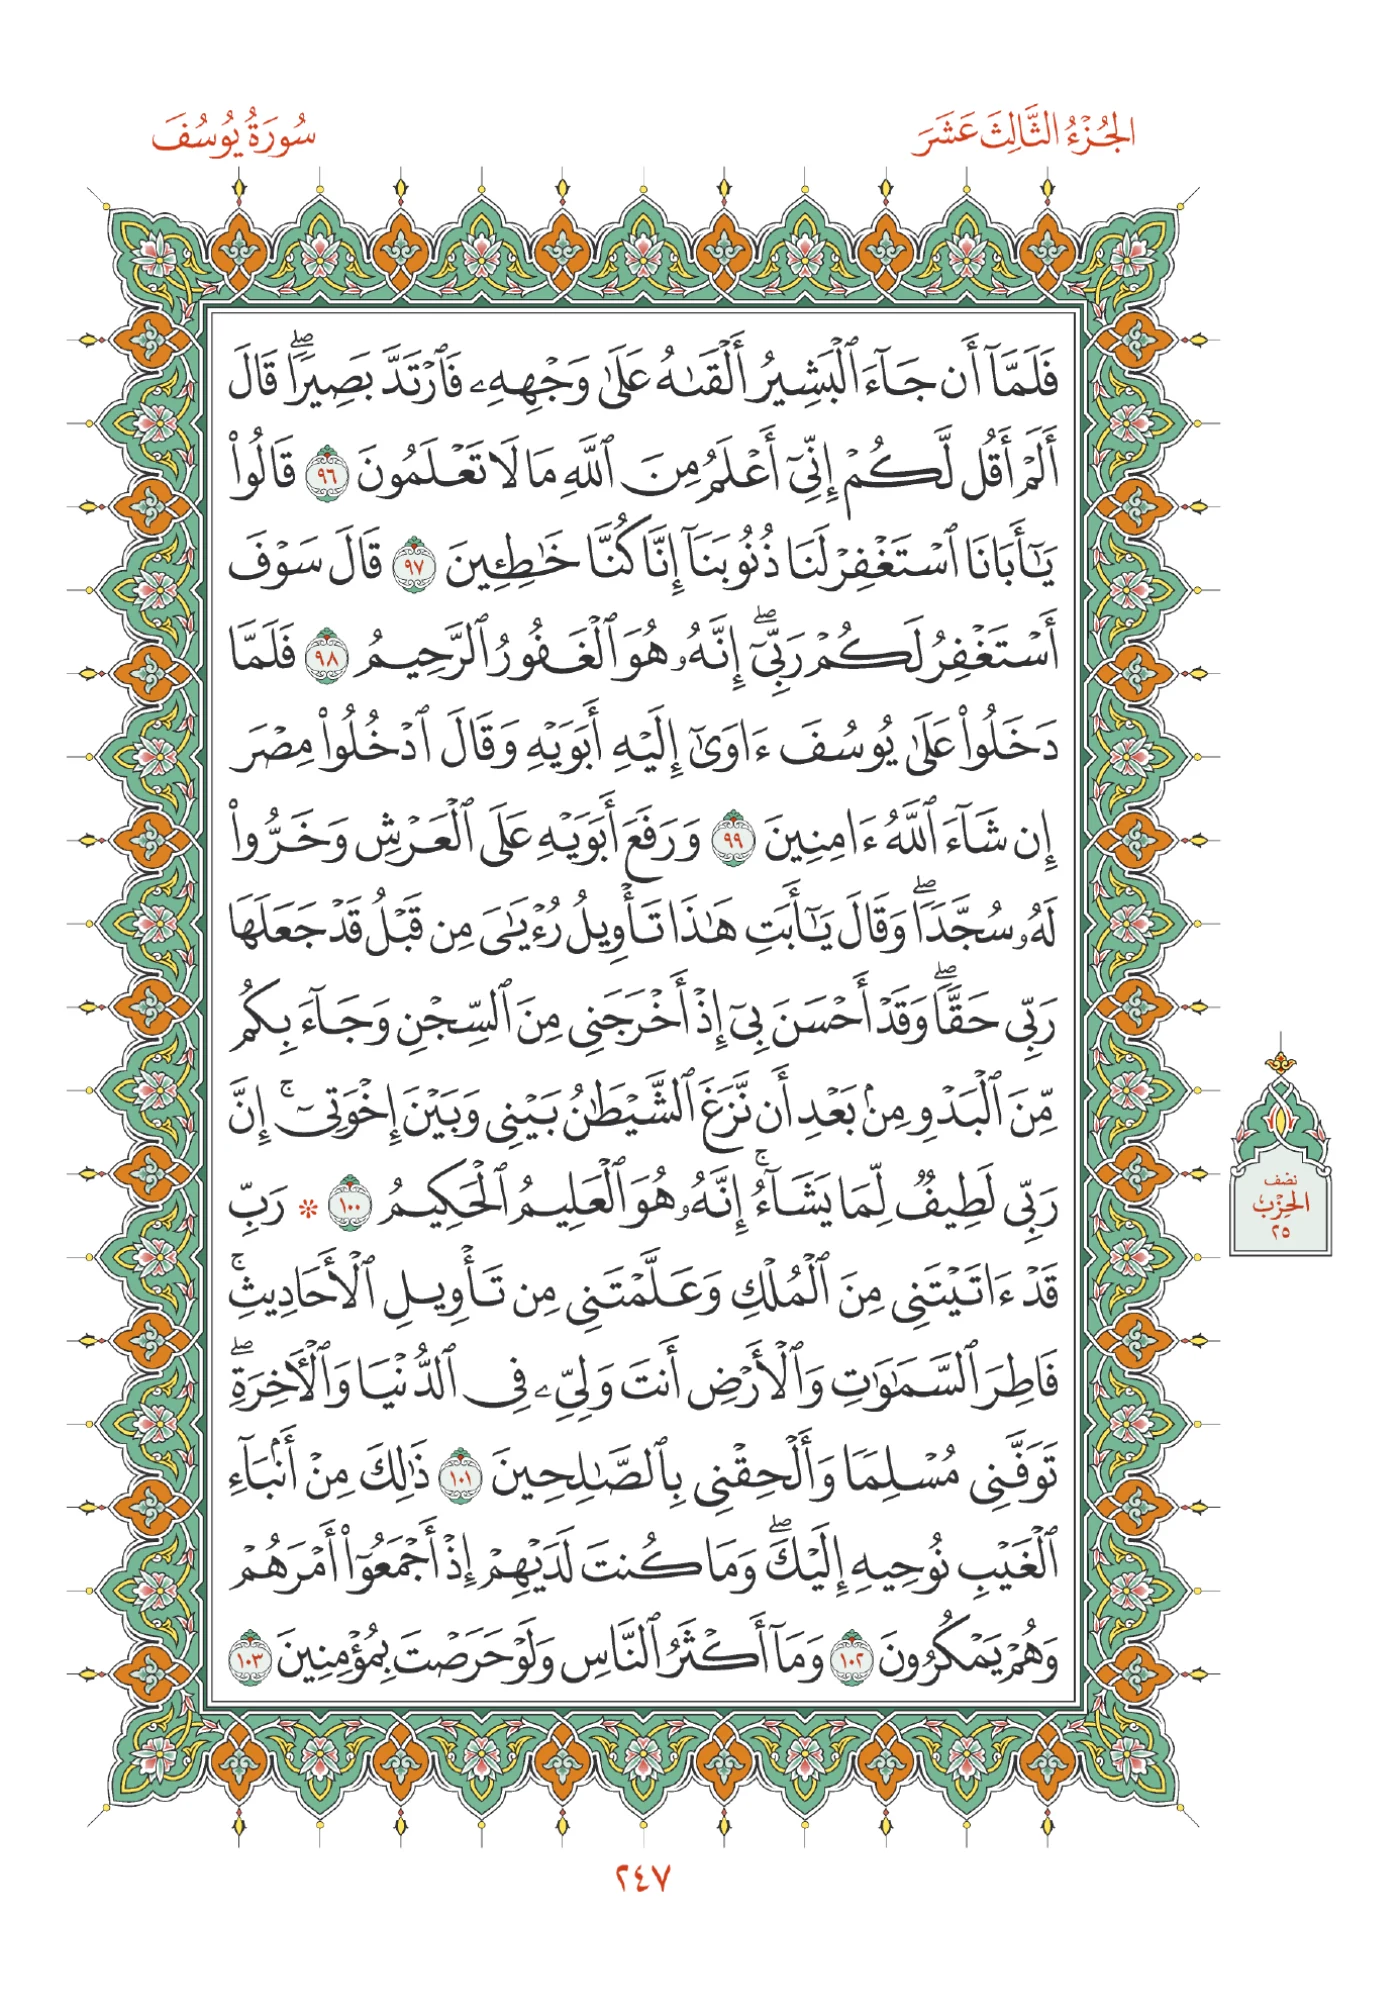 الجُزْءُ الثَّالِثَ عَشَرَ
سُورَةُ يُوسُفَ
فَلَمَّآ أَن جَآءَ ٱلْبَشِيرُ أَلْقَىٰهُ عَلَىٰ وَجْهِهِۦ فَٱرْتَدَّ بَصِيرًاۖ قَالَ
أَلَمْ أَقُل لَّكُمْ إِنِّىٓ أَعْلَمُ مِنَ ٱللَّهِ مَا لَا تَعْلَمُونَ ٩٦ قَالُوا۟
يَـٰٓأَبَانَا ٱسْتَغْفِرْ لَنَا ذُنُوبَنَآ إِنَّا كُنَّا خَـٰطِـِٔينَ ٩٧ قَالَ سَوْفَ
أَسْتَغْفِرُ لَكُمْ رَبِّىٓۖ إِنَّهُۥ هُوَ ٱلْغَفُورُ ٱلرَّحِيمُ ٩٨ فَلَمَّا
دَخَلُوا۟ عَلَىٰ يُوسُفَ ءَاوَىٰٓ إِلَيْهِ أَبَوَيْهِ وَقَالَ ٱدْخُلُوا۟ مِصْرَ
إِن شَآءَ ٱللَّهُ ءَامِنِينَ ٩٩ وَرَفَعَ أَبَوَيْهِ عَلَى ٱلْعَرْشِ وَخَرُّوا۟
لَهُۥ سُجَّدًاۖ وَقَالَ يَـٰٓأَبَتِ هَـٰذَا تَأْوِيلُ رُءْيَـٰىَ مِن قَبْلُ قَدْ جَعَلَهَا
رَبِّى حَقًّاۖ وَقَدْ أَحْسَنَ بِىٓ إِذْ أَخْرَجَنِى مِنَ ٱلسِّجْنِ وَجَآءَ بِكُم
مِّنَ ٱلْبَدْوِ مِنۢ بَعْدِ أَن نَّزَغَ ٱلشَّيْطَـٰنُ بَيْنِى وَبَيْنَ إِخْوَتِىٓۚ إِنَّ
رَبِّى لَطِيفٌ لِّمَا يَشَآءُۚ إِنَّهُۥ هُوَ ٱلْعَلِيمُ ٱلْحَكِيمُ ١٠٠ * رَبِّ
قَدْ ءَاتَيْتَنِى مِنَ ٱلْمُلْكِ وَعَلَّمْتَنِى مِن تَأْوِيلِ ٱلْأَحَادِيثِۚ
فَاطِرَ ٱلسَّمَـٰوَٰتِ وَٱلْأَرْضِ أَنتَ وَلِىِّۦ فِى ٱلدُّنْيَا وَٱلْـَٔاخِرَةِۖ
تَوَفَّنِى مُسْلِمًا وَأَلْحِقْنِى بِٱلصَّـٰلِحِينَ ١٠١ ذَٰلِكَ مِنْ أَنۢبَآءِ
ٱلْغَيْبِ نُوحِيهِ إِلَيْكَۖ وَمَا كُنتَ لَدَيْهِمْ إِذْ أَجْمَعُوٓا۟ أَمْرَهُمْ
وَهُمْ يَمْكُرُونَ ١٠٢ وَمَآ أَكْثَرُ ٱلنَّاسِ وَلَوْ حَرَصْتَ بِمُؤْمِنِينَ ١٠٣
نصْف
الحِزْب
٢٥
٢٤٧